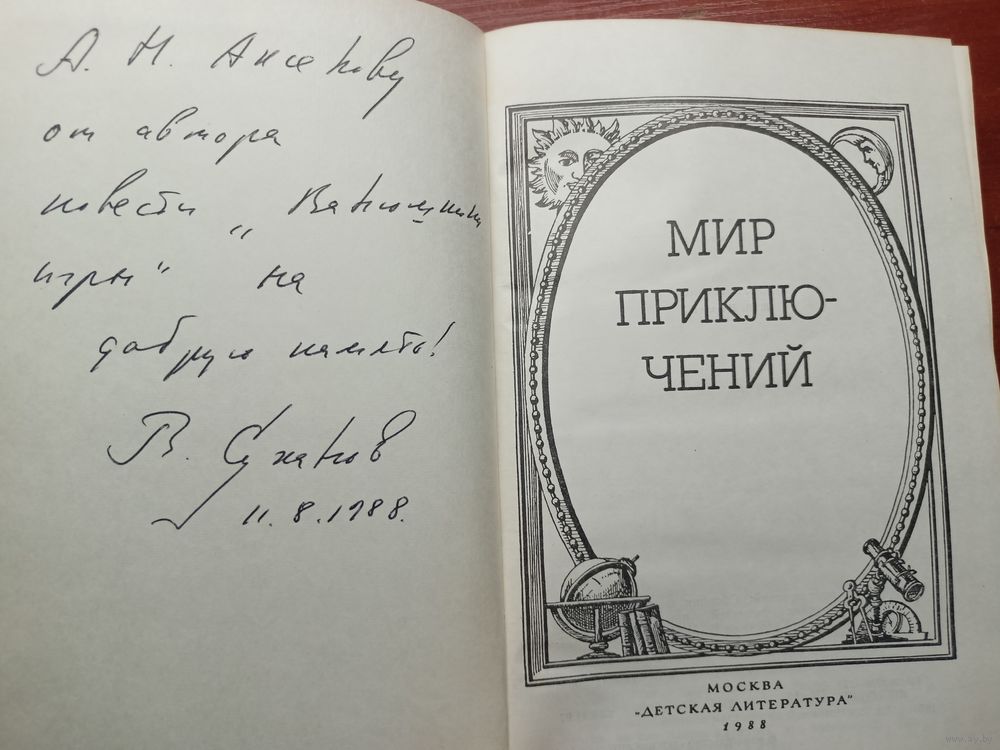 А. Н. Аксакову
от автора
повести „Ванюшкины
игры" на
добрую память!
В. Суханов
11.8.1988.
МИР
ПРИКЛЮ-
ЧЕНИЙ
МОСКВА
„ДЕТСКАЯ ЛИТЕРАТУРА"
1988
www.ay.by